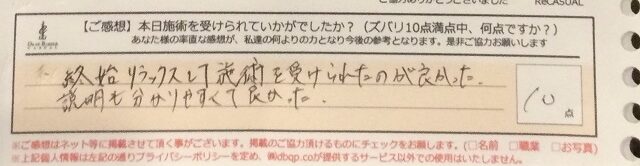 ReCASUAL
【ご感想】本日施術を受けられていかがでしたか？（ズバリ10点満点中、何点ですか？）
あなた様の率直な感想が、私達の何よりの力となり今後の参考となります。是非ご協力お願いします
終始リラックスして施術を受けられたのが良かった.
説明も分かりやすくて良かった.
10点
※ご感想はネット等に掲載させて頂く事がございます。掲載のご協力頂けるものにチェックをお願します。（□名前　□職業　□お写真）
※上記個人情報は左記の通りプライバシーポリシーを定め、㈱dbqp.coが提供するサービス以外での使用はいたしません。